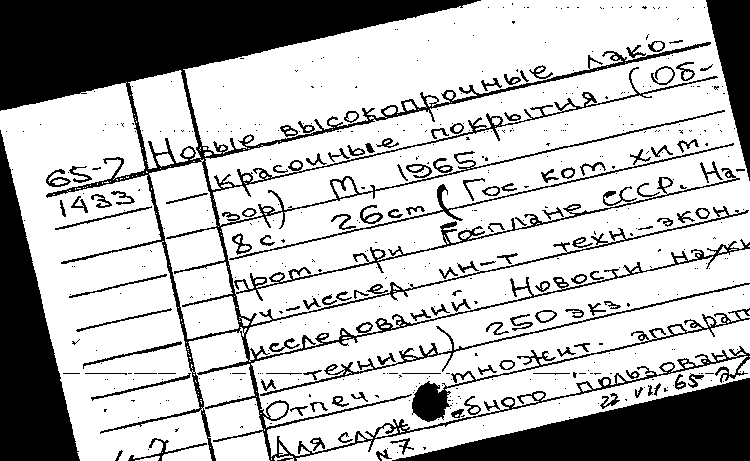 65-7
1433
Новые высокопрочные лако-
красочные покрытия. (Об-
зор). М., 1965.
8 с. 26 cm (Гос. ком. хим.
пром. при Госплане СССР. На-
уч.-исслед. ин-т техн.-экон.
исследований. Новости науки
и техники). 250 экз.
Отпеч. множит. аппарат
Для служебного пользовани
22.VII.65
N 7.